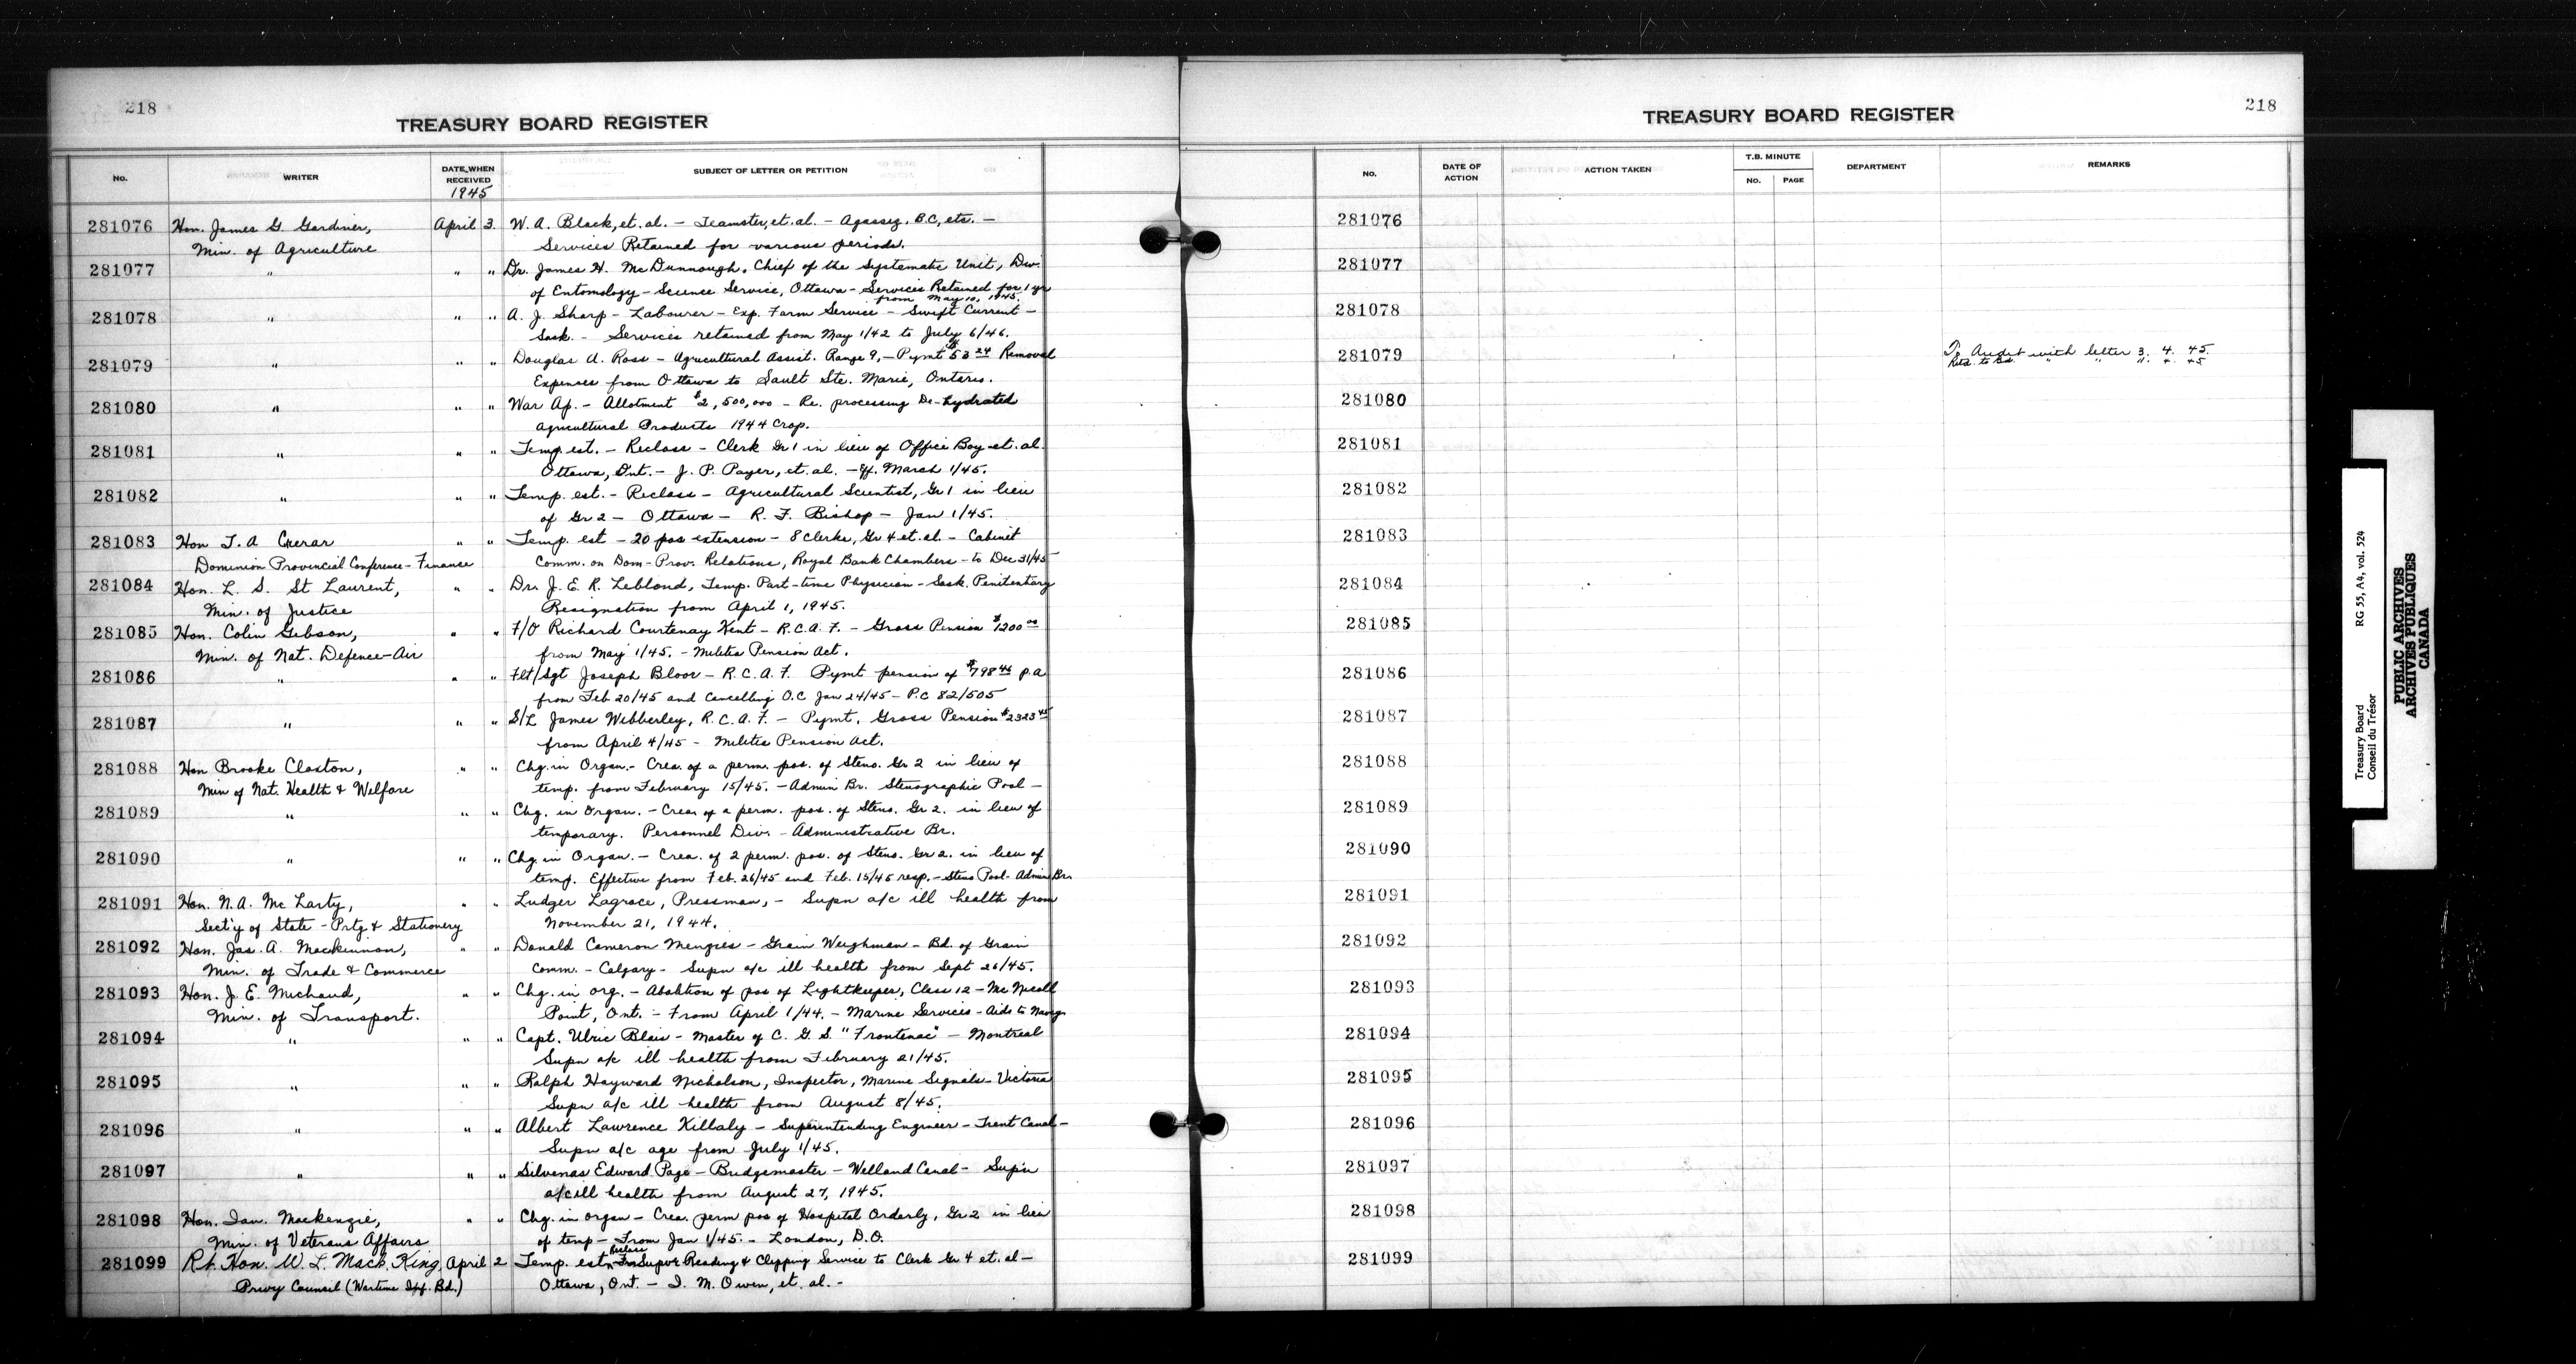 218
TREASURY BOARD REGISTER
No. WRITER DATE WHEN RECEIVED SUBJECT OF LETTER OR PETITION
1945
281076 Hon. James G. Gardiner, April 3. W. A. Black, et. al. - Teamster, et. al. - Agassiz, B.C, etc. -
Min. of Agriculture Services Retained for various periods.
281077 " " " Dr. James H. McDunnough, Chief of the Systematic Unit, Div.
of Entomology - Science Service, Ottawa - Services Retained for 1 yr
from May 10, 1945.
281078 " " " A. J. Sharp - Labourer - Exp. Farm Service - Swift Current -
Sask. - Services retained from May 1/42 to July 6/46.
281079 " " " Douglas A. Ross - Agricultural Assist. Range 9, - Pymt $53.24 Removal
Expenses from Ottawa to Sault Ste. Marie, Ontario.
281080 " " " War Ap. - Allotment $2,500,000 - Re. processing De-hydrated
Agricultural Products 1944 Crop.
281081 " " " Temp. est. - Reclass - Clerk Gr 1 in lieu of Office Boy et. al.
Ottawa, Ont. - J. P. Payer, et. al. - Eff. March 1/45.
281082 " " " Temp. est. - Reclass - Agricultural Scientist, Gr 1 in lieu
of Gr 2 - Ottawa - R. F. Bishop - Jan 1/45.
281083 Hon T. A Crerar " " Temp. est - 20 pos extension - 8 Clerks, Gr 4 et. al. - Cabinet
Dominion Provincial Conference - Finance Comm. on Dom-Prov. Relations, Royal Bank Chambers - to Dec 31/45
281084 Hon. L. S. St Laurent, " " Dr. J. E. R. Leblond, Temp. Part-time Physician - Sask. Penitentiary
Min. of Justice Resignation from April 1, 1945.
281085 Hon. Colin Gibson, " " F/O Richard Courtenay Kent - R.C.A.F. - Gross Pension $1200.00
Min. of Nat. Defence - Air from May 1/45. - Militia Pension Act.
281086 " " " Flt/Sgt Joseph Bloor - R.C.A.F. Pymt pension of $798.46 p.a
from Feb 20/45 and Cancelling O.C Jan 24/45 - P.C 82/505
281087 " " " S/L James Wibberley, R.C.A.F. - Pymt. Gross Pension $2323.45
from April 4/45 - Militia Pension Act.
281088 Hon Brooke Claxton, " " Chg. in Organ. - Crea. of a perm. pos. of Steno. Gr 2 in lieu of
Min of Nat. Health & Welfare temp. from February 15/45. - Admin Br. Stenographic Pool -
281089 " " " Chg. in Organ. - Crea. of a perm. pos. of Steno. Gr 2. in lieu of
temporary. Personnel Div. - Administrative Br.
281090 " " " Chg. in Organ. - Crea. of 2 perm. pos. of Steno. Gr 2. in lieu of
temp. Effective from Feb. 26/45 and Feb. 15/45 resp. - Steno Pool - Admin Br.
281091 Hon. N. A. Mc Larty, " " Ludger Lagrace, Pressman, - Supn a/c ill health from
Sect'y of State - Prtg & Stationery November 21, 1944.
281092 Hon. Jas. A. Mackinnon, " " Donald Cameron Menzies - Grain Weighman - Bd. of Grain
Min. of Trade & Commerce Comm. - Calgary - Supn a/c ill health from Sept 26/45.
281093 Hon. J. E. Michaud, " " Chg. in org. - Abolition of pos of Lightkeeper, Class 12 - Mc Nicoll
Min. of Transport. Point, Ont. - From April 1/44. - Marine Services - Aids to Navig.
281094 " " " Capt. Ulric Blais - Master of C. G. S. "Frontenac" - Montreal
Supn a/c ill health from February 21/45.
281095 " " " Ralph Hayward Nicholson, Inspector, Marine Signals - Victoria
Supn a/c ill health from August 8/45.
281096 " " " Albert Lawrence Killaly - Superintending Engineer - Trent Canal -
Supn a/c age from July 1/45.
281097 " " " Silvenas Edward Page - Bridgemaster - Welland Canal - Supn
a/c ill health from August 27, 1945.
281098 Hon. Ian. Mackenzie, " " Chg. in organ - Crea. perm pos of Hospital Orderly, Gr 2 in lieu
Min. of Veterans Affairs of temp - From Jan 1/45. - London, D.O.
281099 Rt. Hon. W. L. Mack. King, April 2 Temp. est Reclass Supvr Reading & Clipping Service to Clerk Gr 4 et. al -
Privy Council (Wartime Inf. Bd.) Ottawa, Ont. - I. M. Owen, et. al. -
TREASURY BOARD REGISTER
218
No. DATE OF ACTION ACTION TAKEN T.B. MINUTE NO. PAGE DEPARTMENT REMARKS
281076
281077
281078
281079 To Audit with letter 3. 4. 45.
Retd. to Bd. " " 11. 4. 45
281080
281081
281082
281083
281084
281085
281086
281087
281088
281089
281090
281091
281092
281093
281094
281095
281096
281097
281098
281099
Treasury Board
Conseil du Trésor
RG 55, A4, vol. 524
PUBLIC ARCHIVES
ARCHIVES PUBLIQUES
CANADA